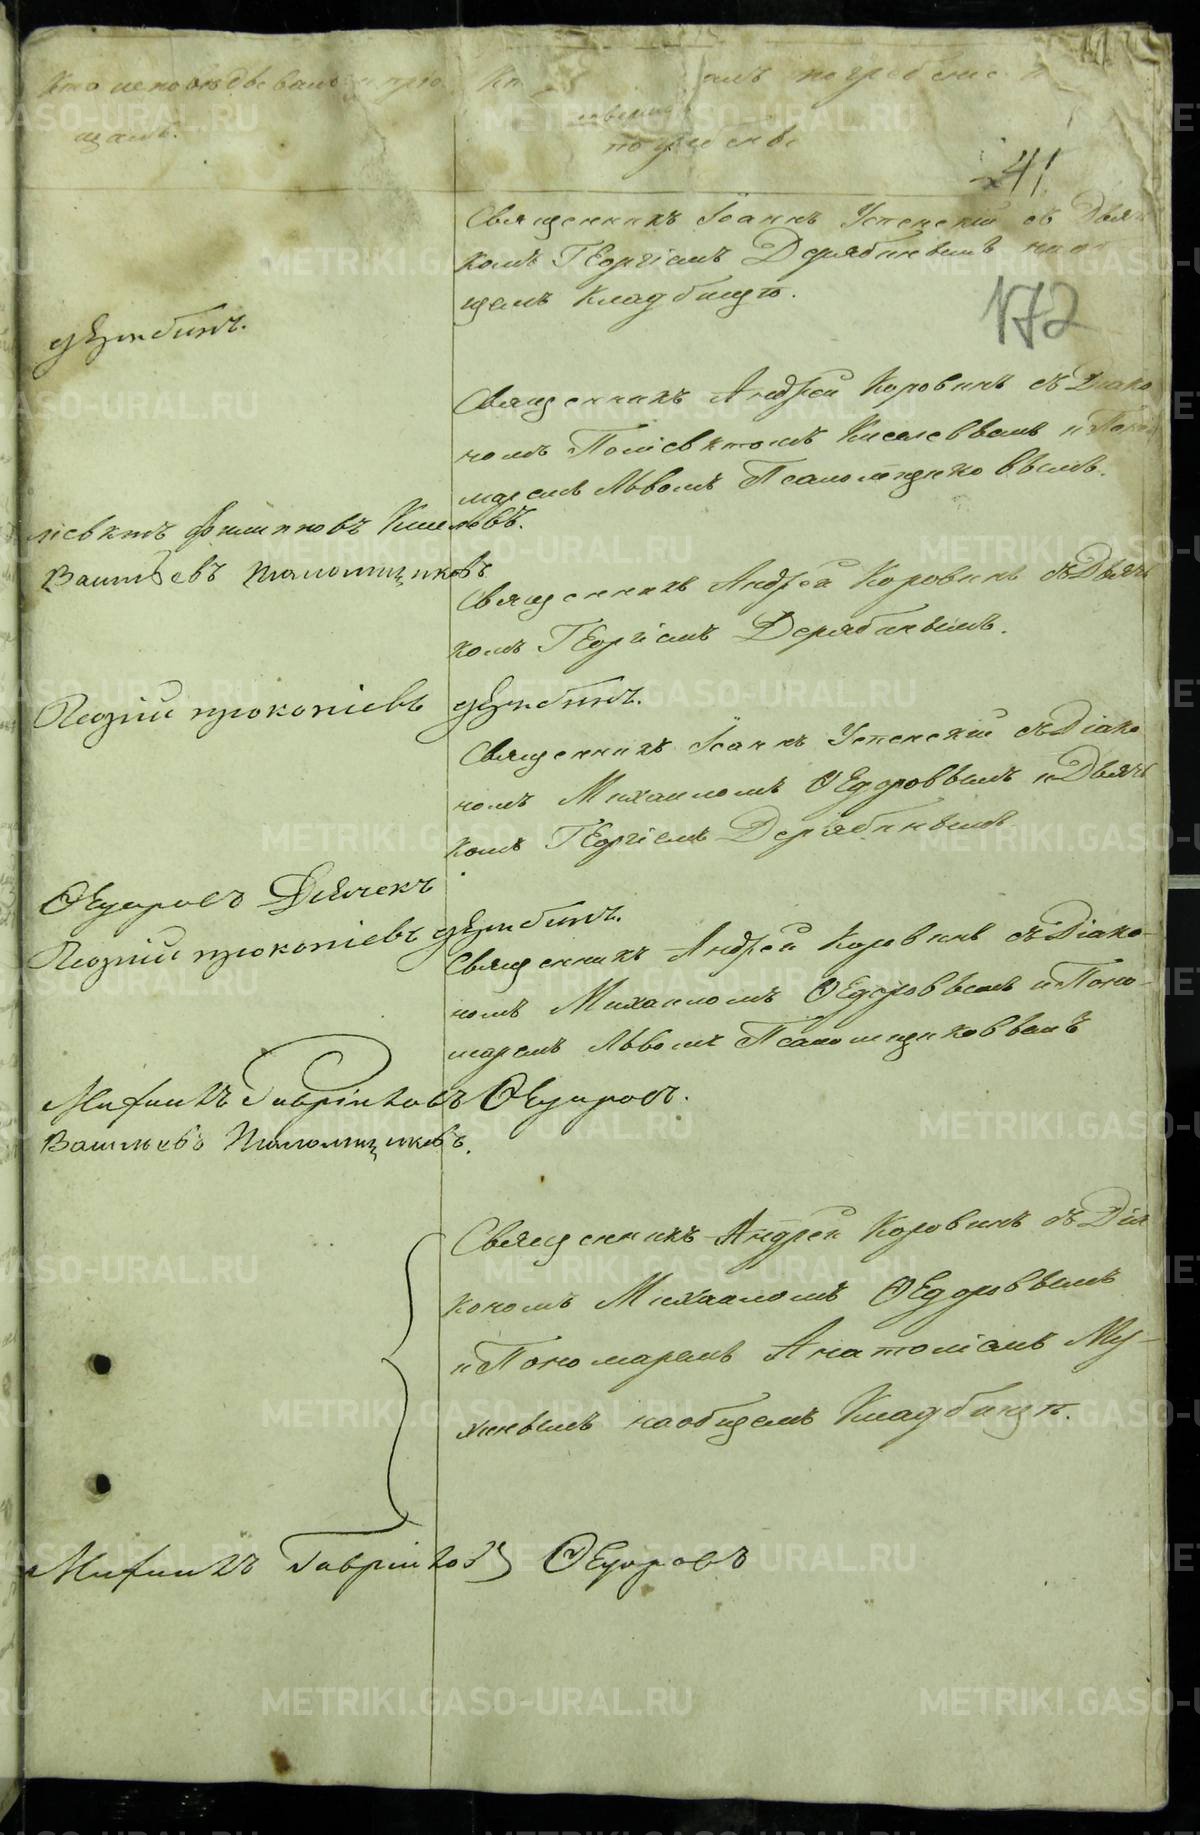 Кто исповѣдывалъ и прiо
щалъ.
погребенiе и
погребены
41
Священникъ Iоаннъ Успенскiй съ Дьяч
комъ Георгiемъ Дерябинымъ на об
щемъ Кладбищѣ.
172
дерябинъ.
Священникъ Андрей Коровинъ съ Дiако
номъ Полiевктомъ Киселевымъ и Поно
маремъ Львомъ Псаломщиковымъ.
лiевктъ Филиповъ Киселовъ.
Васильевъ Псаломщиковъ
Священникъ Андрей Коровинъ съ Дьяч
комъ Георгiемъ Дерябинымъ.
Георгiй прокопiевъ дерябинъ.
Священникъ Iоаннъ Успенскiй съ Дiако
номъ Михаиломъ Ѳедоровымъ и Дьяч
комъ Георгiемъ Дерябинымъ
Ѳедоровъ Дьячекъ
Георгiй прокопiевъ дерябинъ.
Священникъ Андрей Коровинъ съ Дiако-
номъ Михаиломъ Ѳедоровымъ и Поно-
маремъ Львомъ Псаломщиковымъ
Михаилъ Гавриловъ Ѳедоровъ.
Васильевъ Псаломщиковъ.
Священникъ Андрей Коровинъ съ Дiя
кономъ Михаиломъ Ѳедоровымъ
и Пономаремъ Анатолiемъ Му-
хинымъ на общемъ Кладбищѣ.
Михаилъ Гавриловъ Ѳедоровъ
METRIKI.GASO-URAL.RU